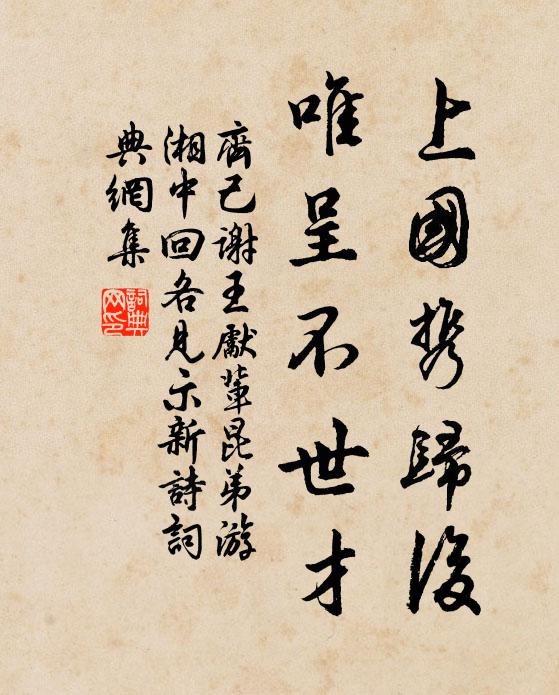 上國携歸後
唯呈不世才
齊己謝王獻輩昆弟游
湘中回各見示新詩詞
典網集
詞典网印